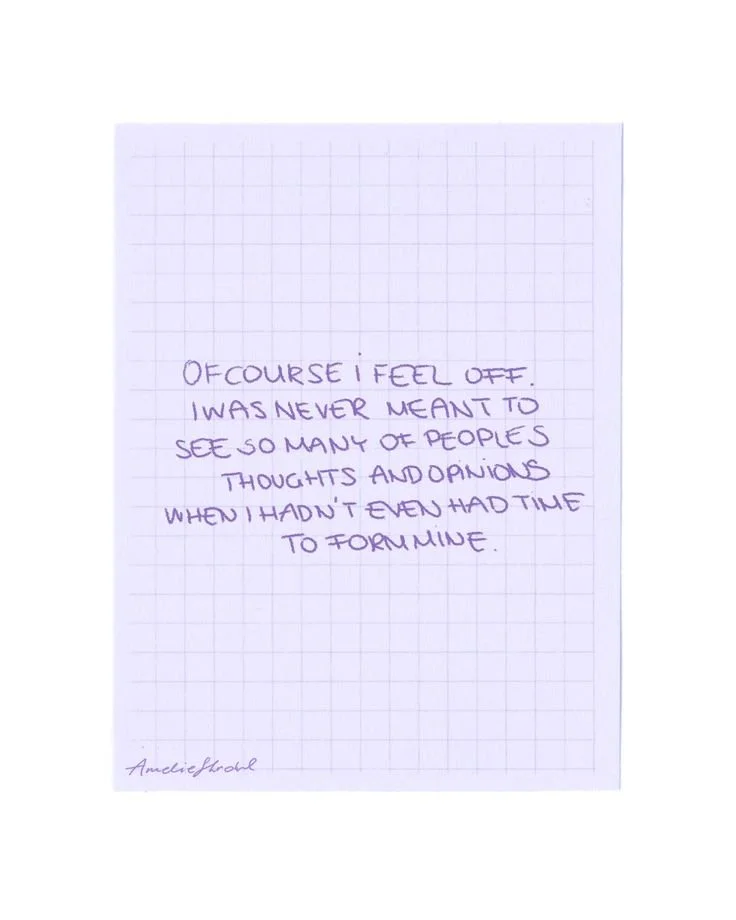 OF COURSE i FEEL OFF.
I WAS NEVER MEANT TO
SEE SO MANY OF PEOPLES
THOUGHTS AND OPINIONS
WHEN I HADN'T EVEN HAD TIME
TO FORM MINE.
Amelie Strobl